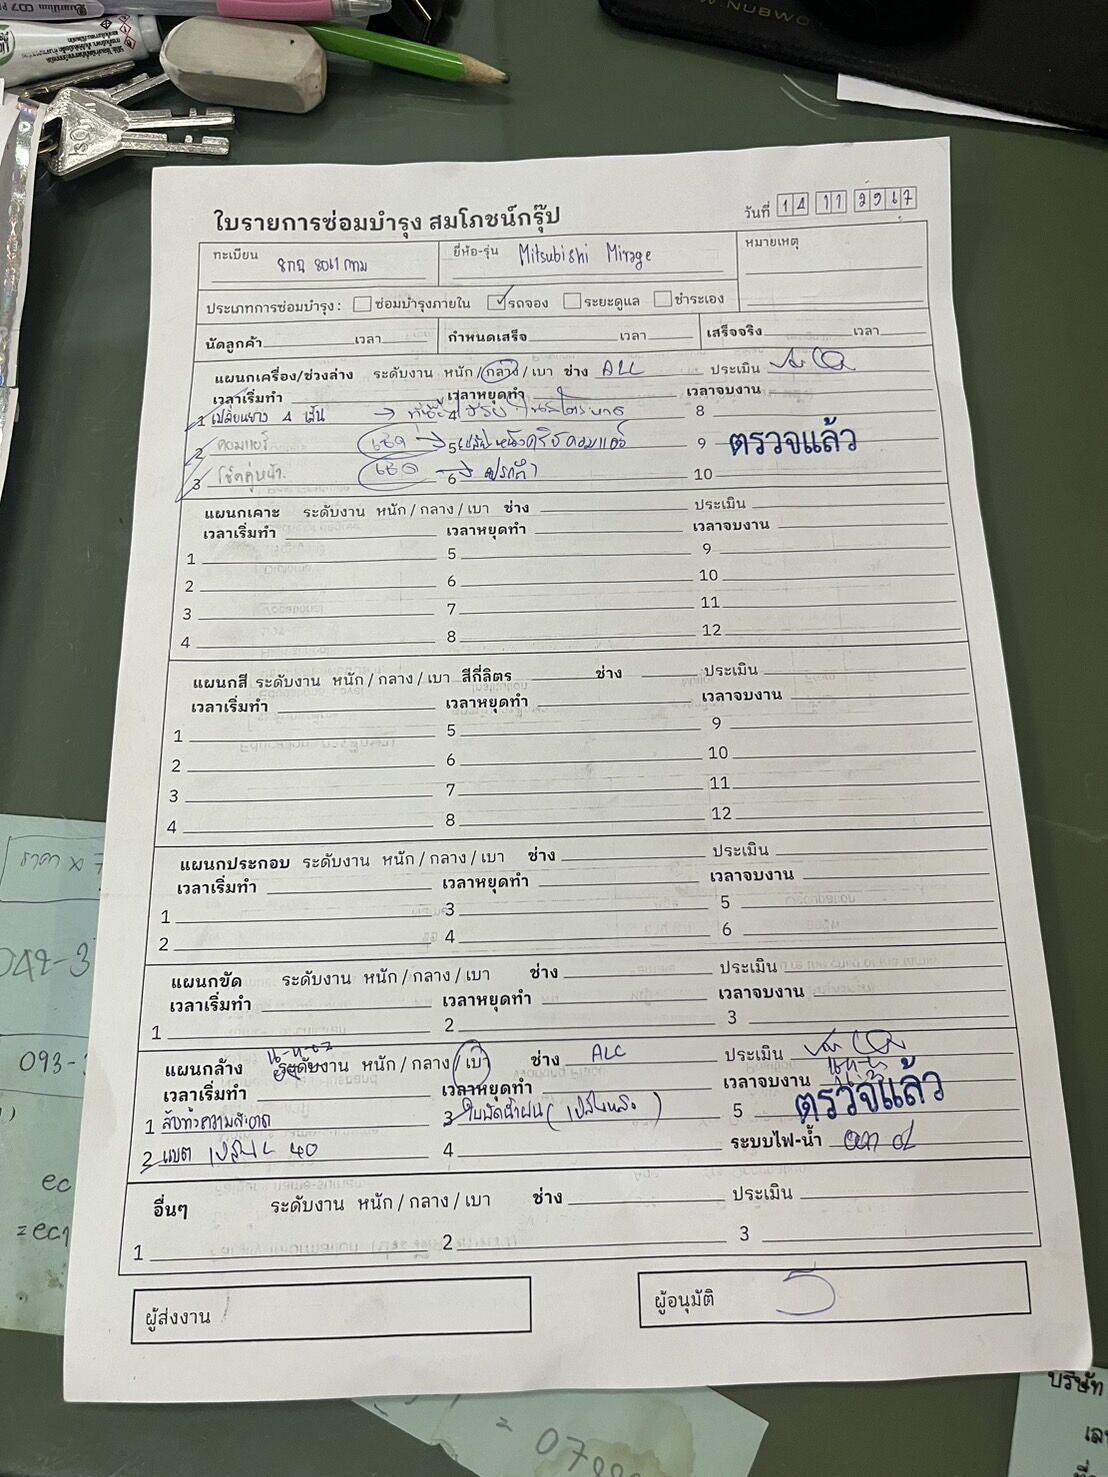 NUBWO
ใบรายการซ่อมบำรุง สมโภชน์กรุ๊ป
วันที่ 14 11 2567
ทะเบียน 8กฉ 8011 กทม
ยี่ห้อ-รุ่น Mitsubishi Mirage
หมายเหตุ
ประเภทการซ่อมบำรุง : ซ่อมบำรุงภายใน รถจอง ระยะดูแล ชำระเอง
นัดลูกค้า เวลา กำหนดเสร็จ เวลา เสร็จจริง เวลา
แผนกเครื่อง/ช่วงล่าง ระดับงาน หนัก / กลาง / เบา ช่าง ALL ประเมิน
เวลาเริ่มทำ เวลาหยุดทำ เวลาจบงาน
1 เปลี่ยนยาง 4 เส้น 4 8
2 คอมแอร์ เช็ค 5 9 ตรวจแล้ว
3 โช้คคู่หน้า. เช็ค 6 ปรกติ 10
แผนกเคาะ ระดับงาน หนัก / กลาง / เบา ช่าง ประเมิน
เวลาเริ่มทำ เวลาหยุดทำ เวลาจบงาน
1 5 9
2 6 10
3 7 11
4 8 12
แผนกสี ระดับงาน หนัก / กลาง / เบา สีกี่ลิตร ช่าง ประเมิน
เวลาเริ่มทำ เวลาหยุดทำ เวลาจบงาน
1 5 9
2 6 10
3 7 11
4 8 12
แผนกประกอบ ระดับงาน หนัก / กลาง / เบา ช่าง ประเมิน
เวลาเริ่มทำ เวลาหยุดทำ เวลาจบงาน
1 3 5
2 4 6
แผนกขัด ระดับงาน หนัก / กลาง / เบา ช่าง ประเมิน
เวลาเริ่มทำ เวลาหยุดทำ เวลาจบงาน
1 2 3
16-11-67
แผนกล้าง ระดับงาน หนัก / กลาง / เบา ช่าง ALL ประเมิน
เวลาเริ่มทำ เวลาหยุดทำ เวลาจบงาน
1 ล้างทำความสะอาด 3 ใบปัดน้ำฝน ( ) 5 ตรวจแล้ว
2 แบต 40 4 ระบบไฟ-น้ำ
อื่นๆ ระดับงาน หนัก / กลาง / เบา ช่าง ประเมิน
1 2 3
ผู้ส่งงาน
ผู้อนุมัติ
ราคา x 7
042-3
093-
ec
= ec1
= 07
บริษัท